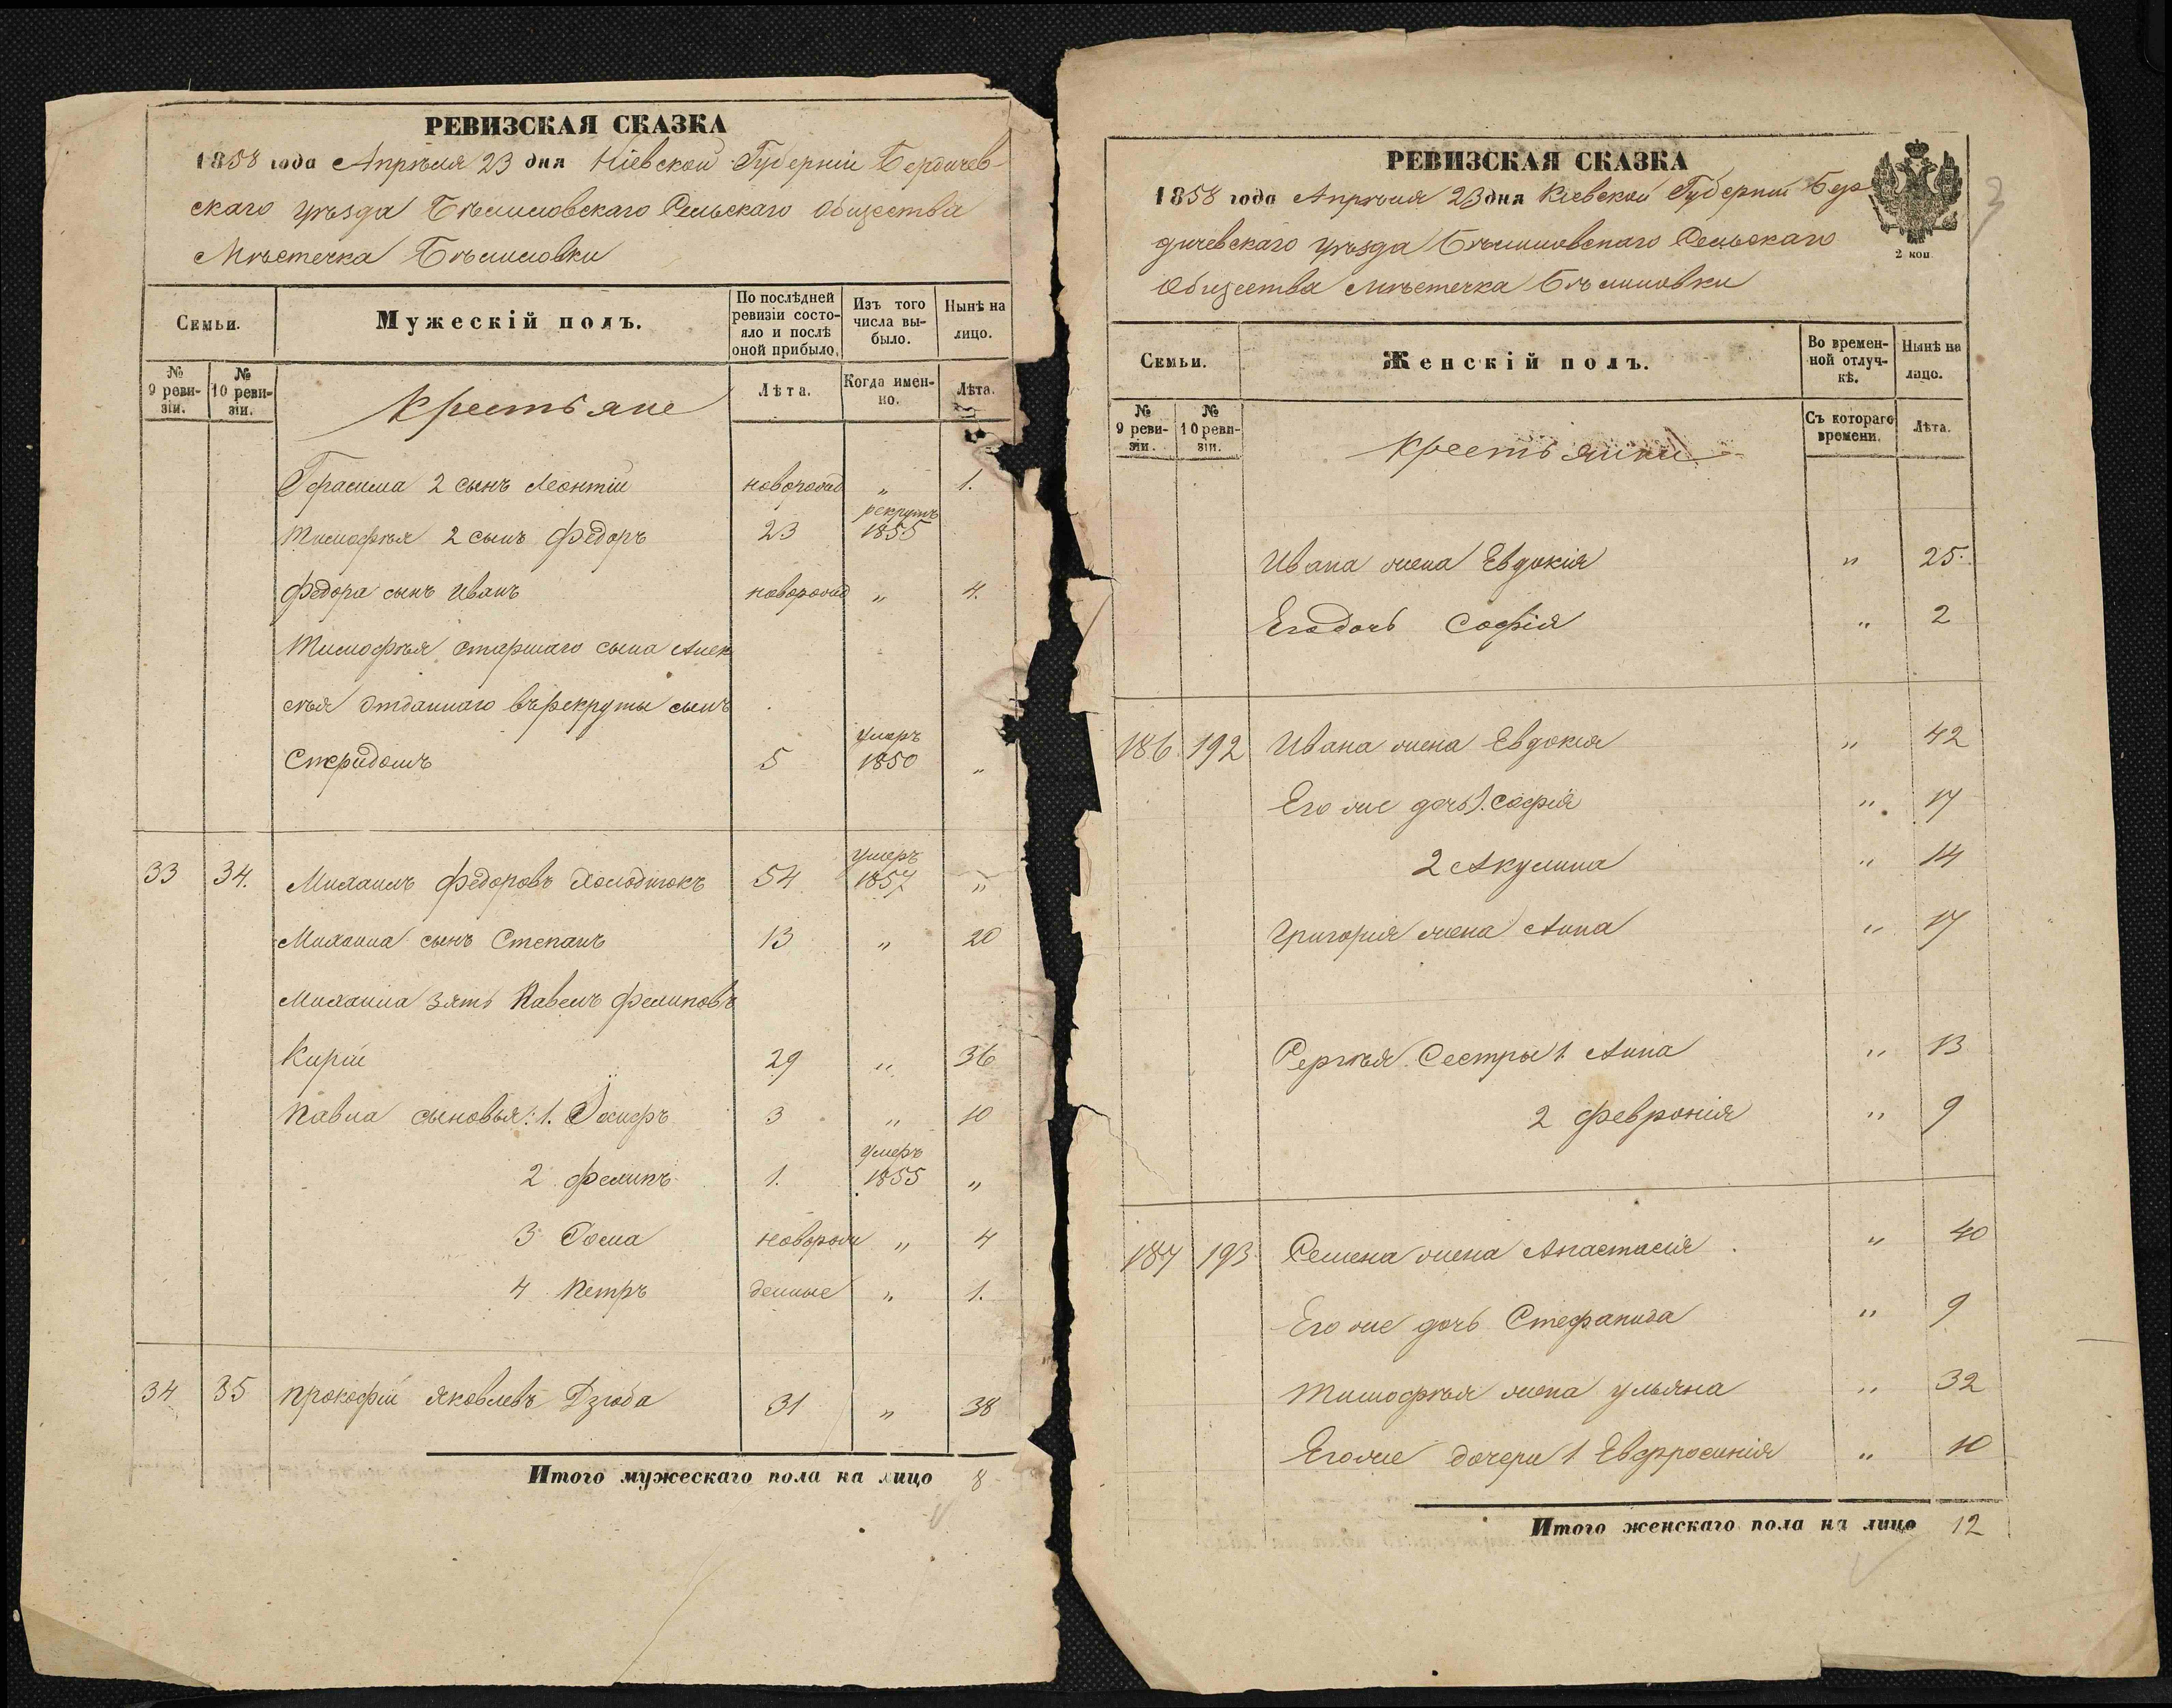 РЕВИЗСКАЯ СКАЗКА
1858 года Апрѣля 23 дня Кіевской Губерніи Бердичев-
скаго уѣзда Бѣлиловскаго Сельскаго Общества
Мѣстечка Бѣлиловки
Семьи.
Мужескій полъ.
По послѣдней ревизіи состояло и послѣ оной прибыло.
Изъ того числа выбыло.
Нынѣ на лицо.
№ 9 ревизіи.
№ 10 ревизіи.
Крестьяне
Лѣта.
Когда именно.
Лѣта.
Герасима 2 сынъ Леонтій новорожд „ 1.
Тимофѣя 2 сынъ Федоръ 23 рекрутъ 1855
Федора сынъ Иванъ новорожд „ 4.
Тимофѣя старшаго сына Алек
сѣя отданнаго въ рекруты сынъ
5 умеръ 1850 „
33 34. Михаилъ Федоровъ Холодзюкъ 54 умеръ 1857 „
Михаила сынъ Степанъ 13 „ 20
Михаила зять Павелъ Фелиповъ
Кирій 29 „ 36
Павла сыновья: 1. Іосифъ 3 „ 10
2 Фелипъ 1. умеръ 1855 „
3 Фома новорож „ 4
4 Петръ денные „ 1.
34 35 Прокофій Яковлевъ Дзюба 31 „ 38
Итого мужескаго пола на лицо 8
РЕВИЗСКАЯ СКАЗКА
1858 года Апрѣля 23 дня Кіевской Губерніи Бер
дичевскаго уѣзда Бѣлиловскаго Сельскаго
Общества Мѣстечка Бѣлиловки
2 коп
3
Семьи.
Женскій полъ.
Во временной отлучкѣ.
Нынѣ на лицо.
№ 9 ревизіи.
№ 10 ревизіи.
Крестьянки
Съ котораго времени.
Лѣта.
Ивана жена Евдокія „ 25.
Его дочь Софія „ 2
186 192 Ивана жена Евдокія „ 42
Его же дочь 1. Софія „ 17
2 Акулина „ 14
Григорія жена Анна „ 17
Сергѣя Сестры 1. Анна „ 13
2 Февронія „ 9
187 193 Семена жена Анастасія „ 40
Его же дочь Стефанида „ 9
Тимофѣя жена Ульяна „ 32
Его же дочери 1 Евфросинія „ 10
Итого женскаго пола на лицо 12